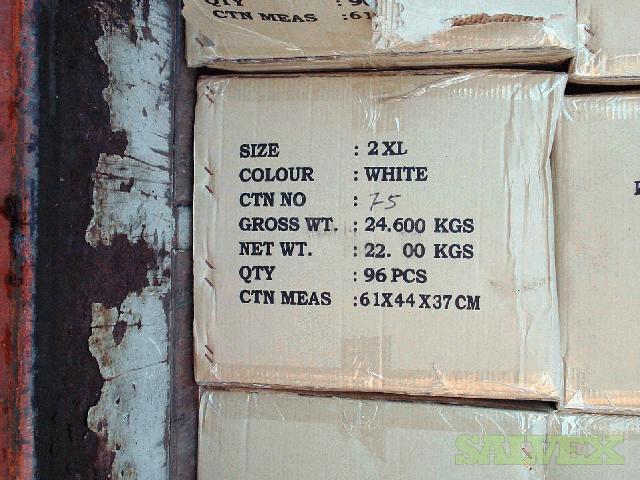 QTY : 9
CTN MEAS :61
SIZE : 2 XL
COLOUR : WHITE
CTN NO : 75
GROSS WT. : 24.600 KGS
NET WT. : 22. 00 KGS
QTY : 96 PCS
CTN MEAS :61X44X37CM
SALVEX